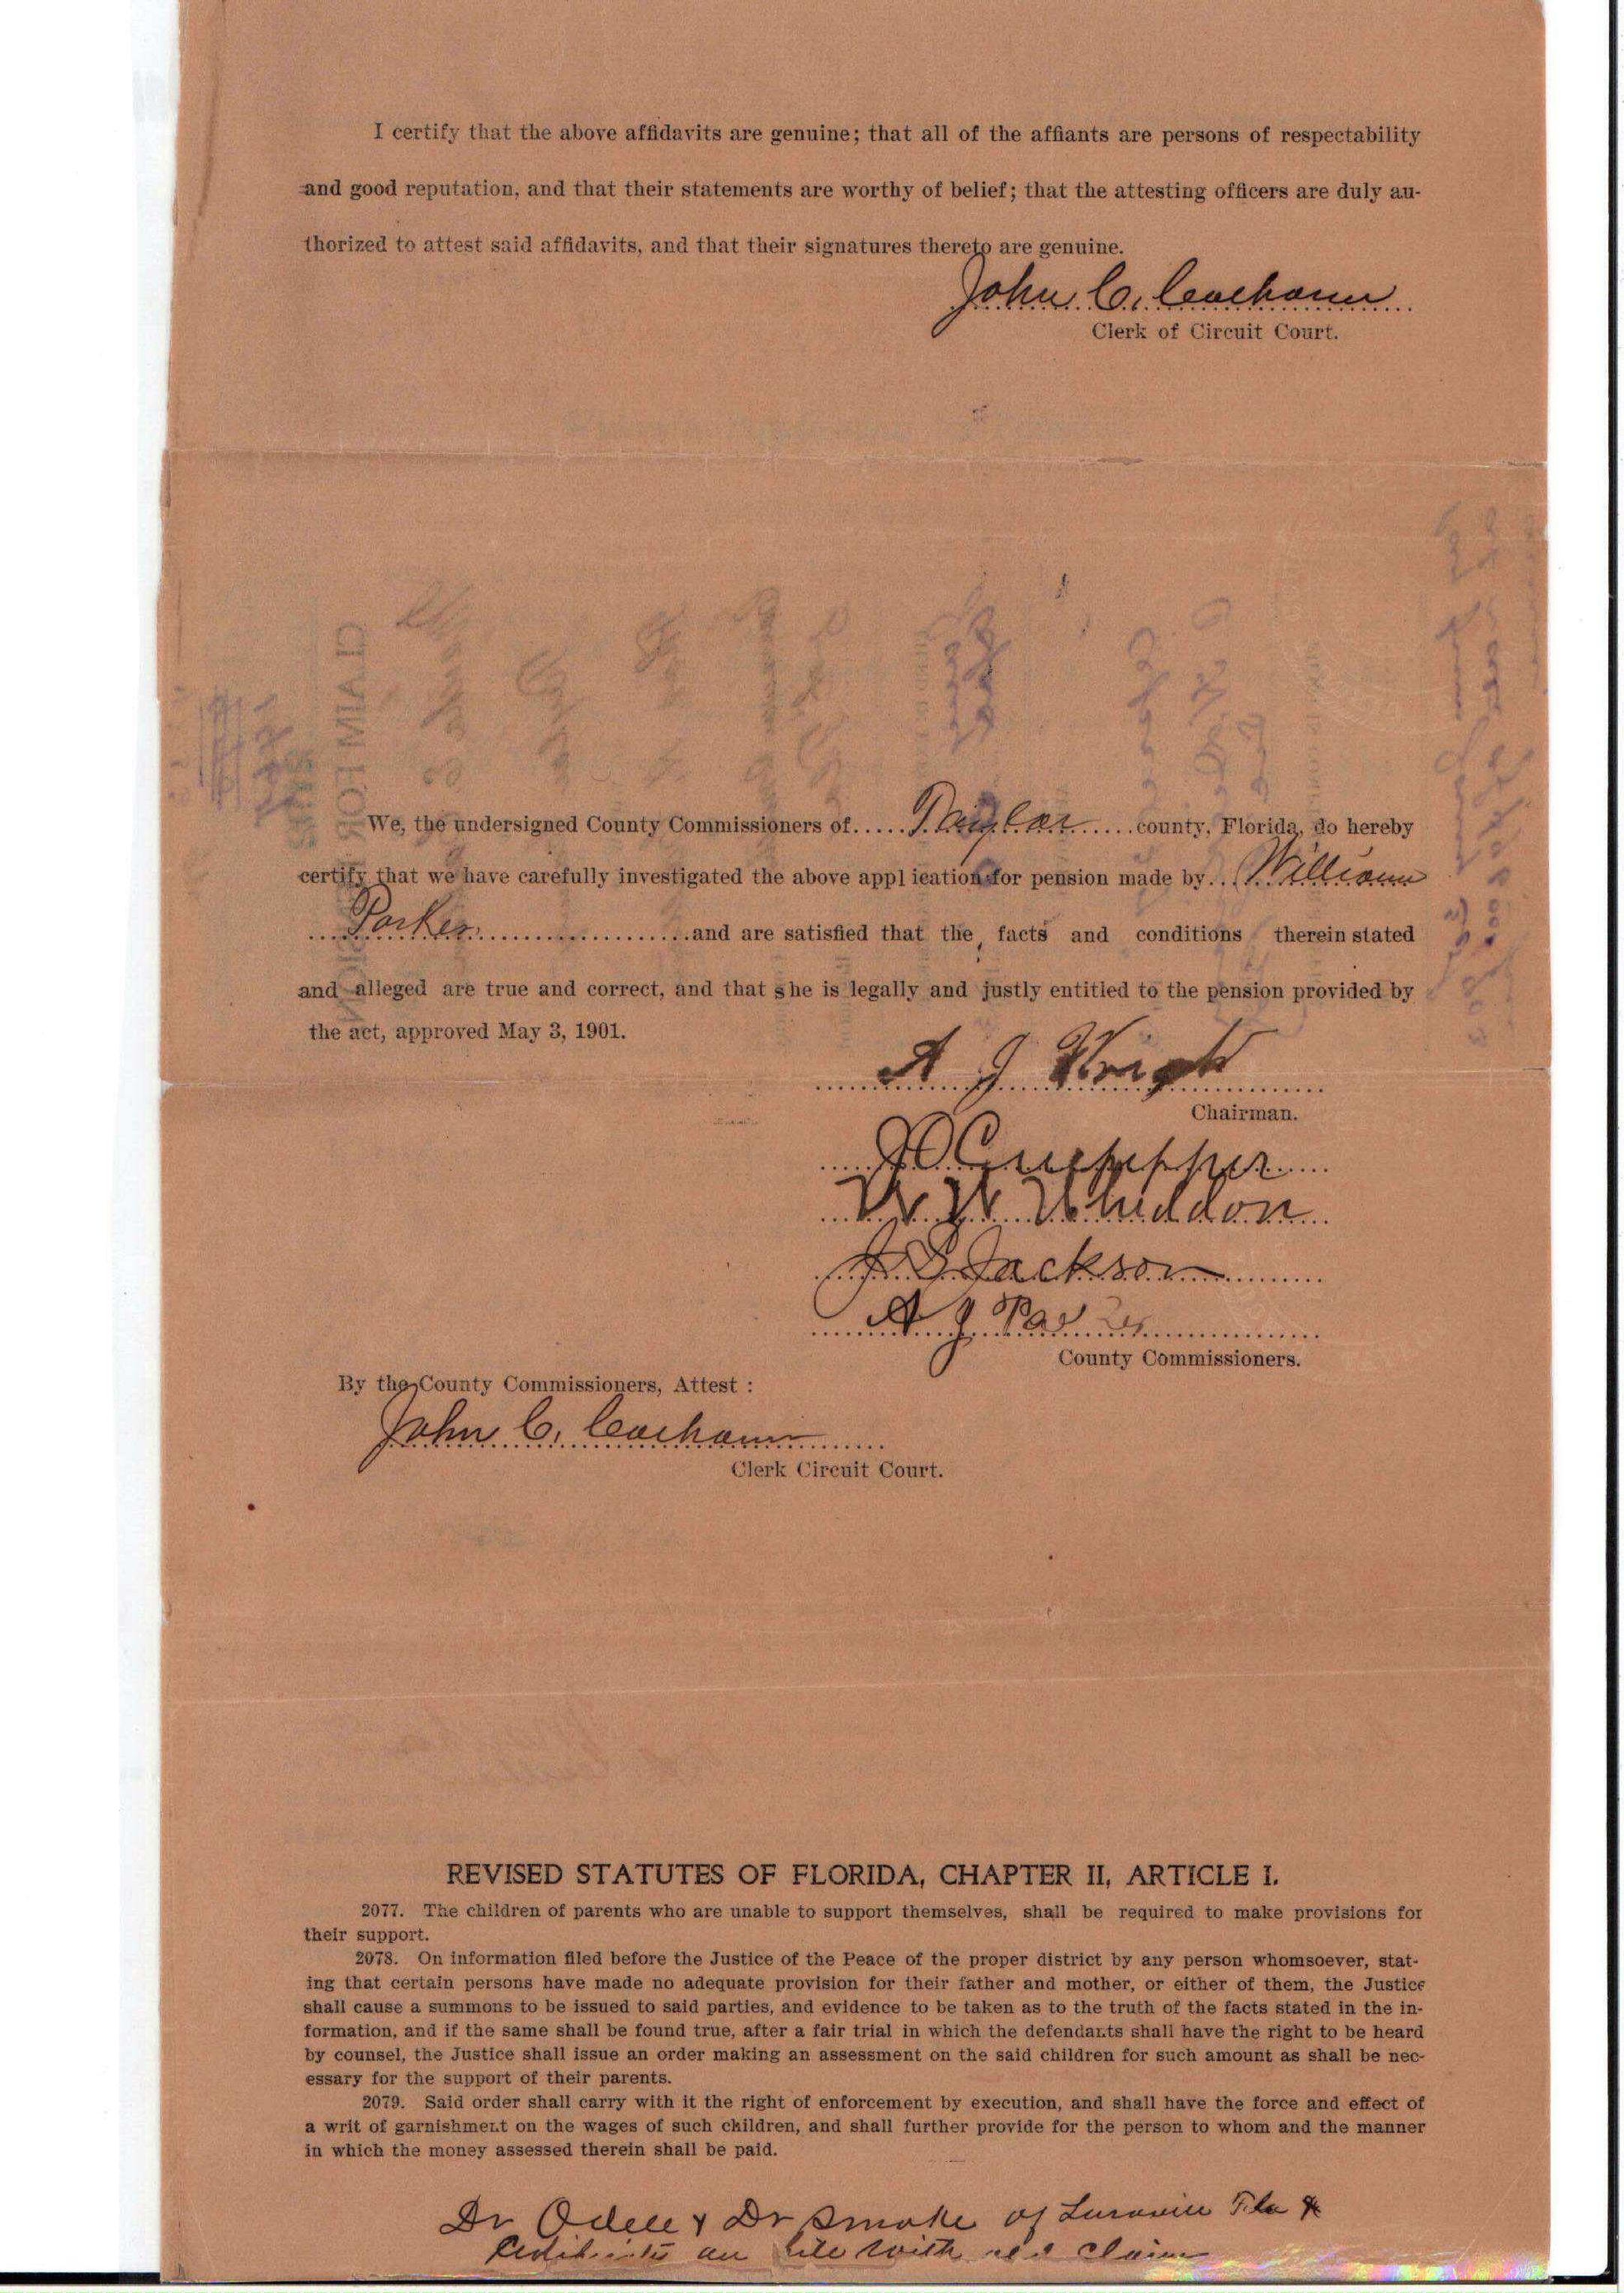 I certify that the above affidavits are genuine; that all of the affiants are persons of respectability
and good reputation, and that their statements are worthy of belief; that the attesting officers are duly au-
thorized to attest said affidavits, and that their signatures thereto are genuine.
John C.
Clerk of Circuit Court.
We, the undersigned County Commissioners of.....Taylor.....county, Florida, do hereby
certify that we have carefully investigated the above appl ication for pension made by...William
...Parker...and are satisfied that the facts and conditions therein stated
and alleged are true and correct, and that s he is legally and justly entitled to the pension provided by
the act, approved May 3, 1901.
A J Wright
Chairman.
J O Culpepper
W W Whiddon
J S Jackson
A J Parker
County Commissioners.
By the County Commissioners, Attest :
John C.
Clerk Circuit Court.
REVISED STATUTES OF FLORIDA, CHAPTER II, ARTICLE I.
2077. The children of parents who are unable to support themselves, shall be required to make provisions for
their support.
2078. On information filed before the Justice of the Peace of the proper district by any person whomsoever, stat-
ing that certain persons have made no adequate provision for their father and mother, or either of them, the Justice
shall cause a summons to be issued to said parties, and evidence to be taken as to the truth of the facts stated in the in-
formation, and if the same shall be found true, after a fair trial in which the defendants shall have the right to be heard
by counsel, the Justice shall issue an order making an assessment on the said children for such amount as shall be nec-
essary for the support of their parents.
2079. Said order shall carry with it the right of enforcement by execution, and shall have the force and effect of
a writ of garnishment on the wages of such children, and shall further provide for the person to whom and the manner
in which the money assessed therein shall be paid.
Dr Odell & Dr Smoke of Luraville Fla
on file with claim